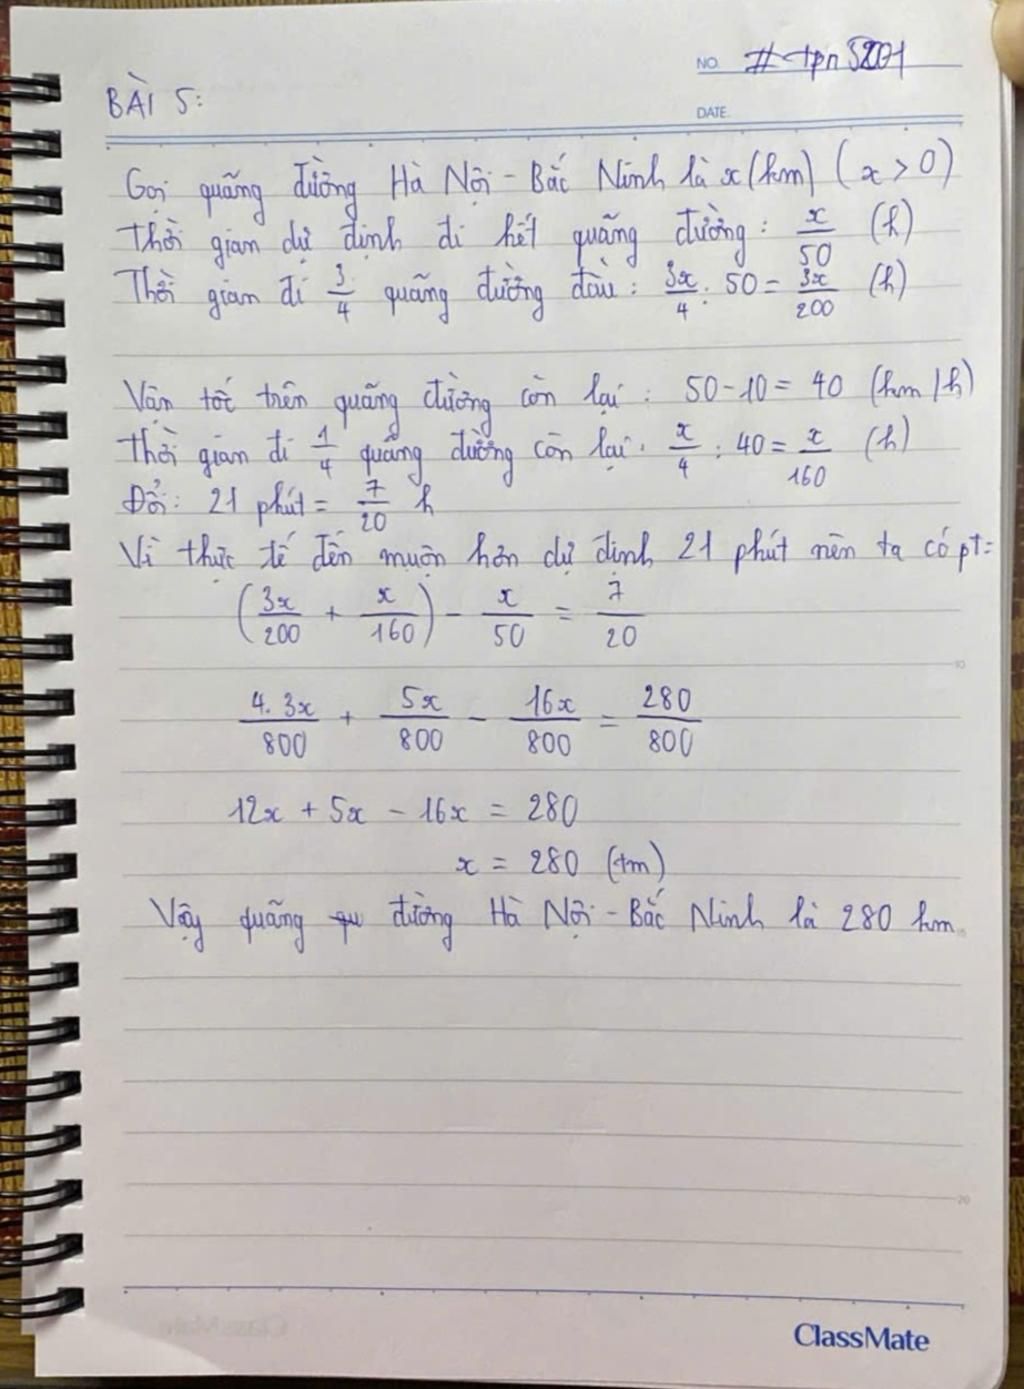 NO. #tpn5201
BÀI 5:
DATE.
Gọi quãng đường Hà Nội - Bắc Ninh là x (km) (x > 0)
Thời gian dự định đi hết quãng đường: x/50 (h)
Thời gian đi 3/4 quãng đường đầu: 3x/4 : 50 = 3x/200 (h)
Vận tốc trên quãng đường còn lại: 50 - 10 = 40 (km/h)
Thời gian đi 1/4 quãng đường còn lại: x/4 : 40 = x/160 (h)
Đổi: 21 phút = 7/20 h
Vì thực tế đến muộn hơn dự định 21 phút nên ta có pt:
(3x/200 + x/160) - x/50 = 7/20
10
4.3x/800 + 5x/800 - 16x/800 = 280/800
12x + 5x - 16x = 280
x = 280 (tm)
Vậy quãng đường Hà Nội - Bắc Ninh là 280 km.
20
ClassMate